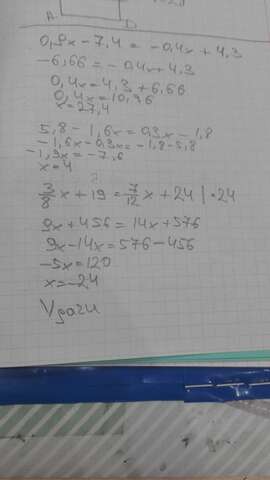 A
D
0,9x - 7,4 = -0,4x + 4,3
-6,66 = -0,4x + 4,3
0,4x = 4,3 + 6,66
0,4x = 10,96
x = 27,4
5,8 - 1,6x = 0,3x - 1,8
-1,6x - 0,3x = -1,8 - 5,8
-1,9x = -7,6
x = 4
3/8 x + 19 = 7/12 x + 24 | · 24
9x + 456 = 14x + 576
9x - 14x = 576 - 456
-5x = 120
x = -24
Удачи